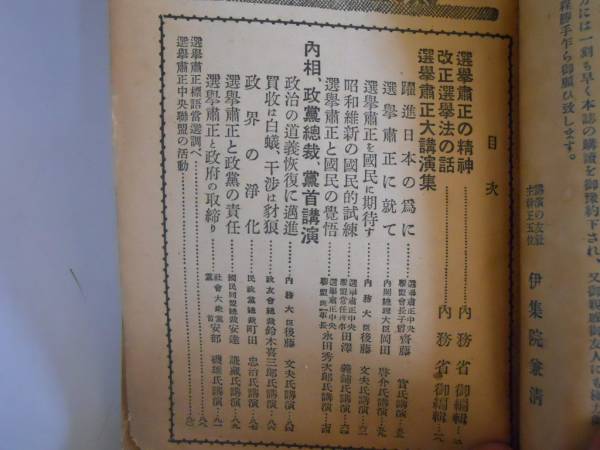 方には一刻も早く本誌の購讀を御豫約下され、又御親戚御友人にも極力
程勝手乍ら御願ひ致します。
講演の友社
伊集院兼清
目次
選擧肅正の精神……內務省御編輯
改正選擧法の話……內務省御編輯
選擧肅正大講演集
躍進日本の爲に……選擧肅正中央聯盟會長子爵齋藤實氏講演
選擧肅正に就て……內閣總理大臣岡田啓介氏講演
選擧肅正を國民に期待す……內務大臣後藤文夫氏講演
昭和維新の國民的試練……選擧肅正中央聯盟常任理事田澤義鋪氏講演
選擧肅正と國民の覺悟……選擧肅正中央聯盟理事長永田秀次郎氏講演
內相、政黨總裁、黨首講演
政治の道義恢復に邁進……內務大臣後藤文夫氏講演
買收は白蟻、干涉は豺狼……政友會總裁鈴木喜三郎氏講演
政界の淨化……民政黨總裁町田忠治氏講演
選擧肅正と政黨の責任……國民同盟總裁安達謙藏氏講演
選擧肅正と政府の取締り……社會大衆黨黨首安部磯雄氏講演
選擧肅正標語當選調べ
選擧肅正中央聯盟の活動